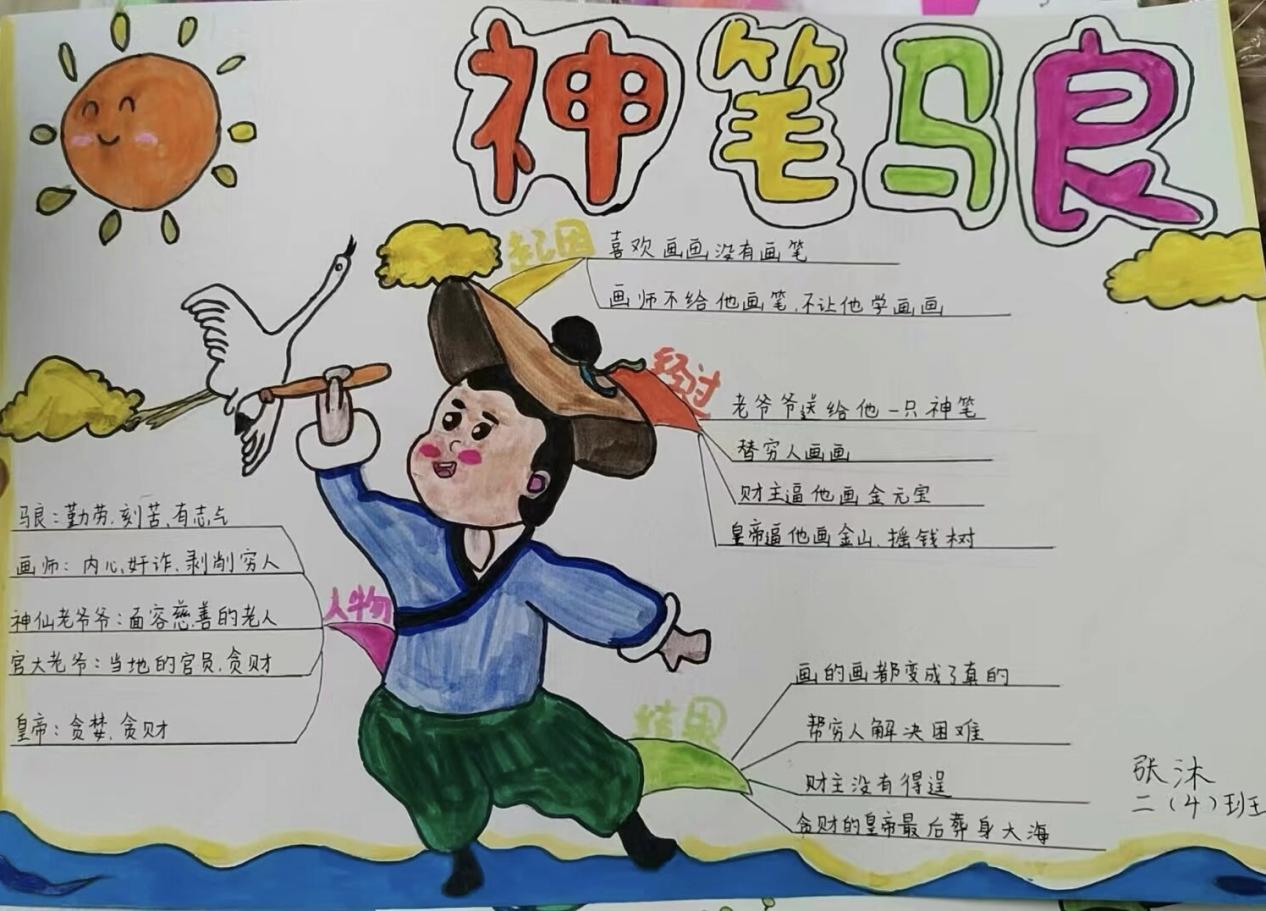 神笔马良
起因
喜欢画画没有画笔
画师不给他画笔,不让他学画画
经过
老爷爷送给他一只神笔
替穷人画画
财主逼他画金元宝
皇帝逼他画金山、摇钱树
人物
马良:勤劳、刻苦、有志气
画师:内心奸诈、剥削穷人
神仙老爷爷:面容慈善的老人
官大老爷:当地的官员,贪财
皇帝:贪婪,贪财
结果
画的画都变成了真的
帮穷人解决困难
财主没有得逞
贪财的皇帝最后葬身大海
张沐
二(4)班